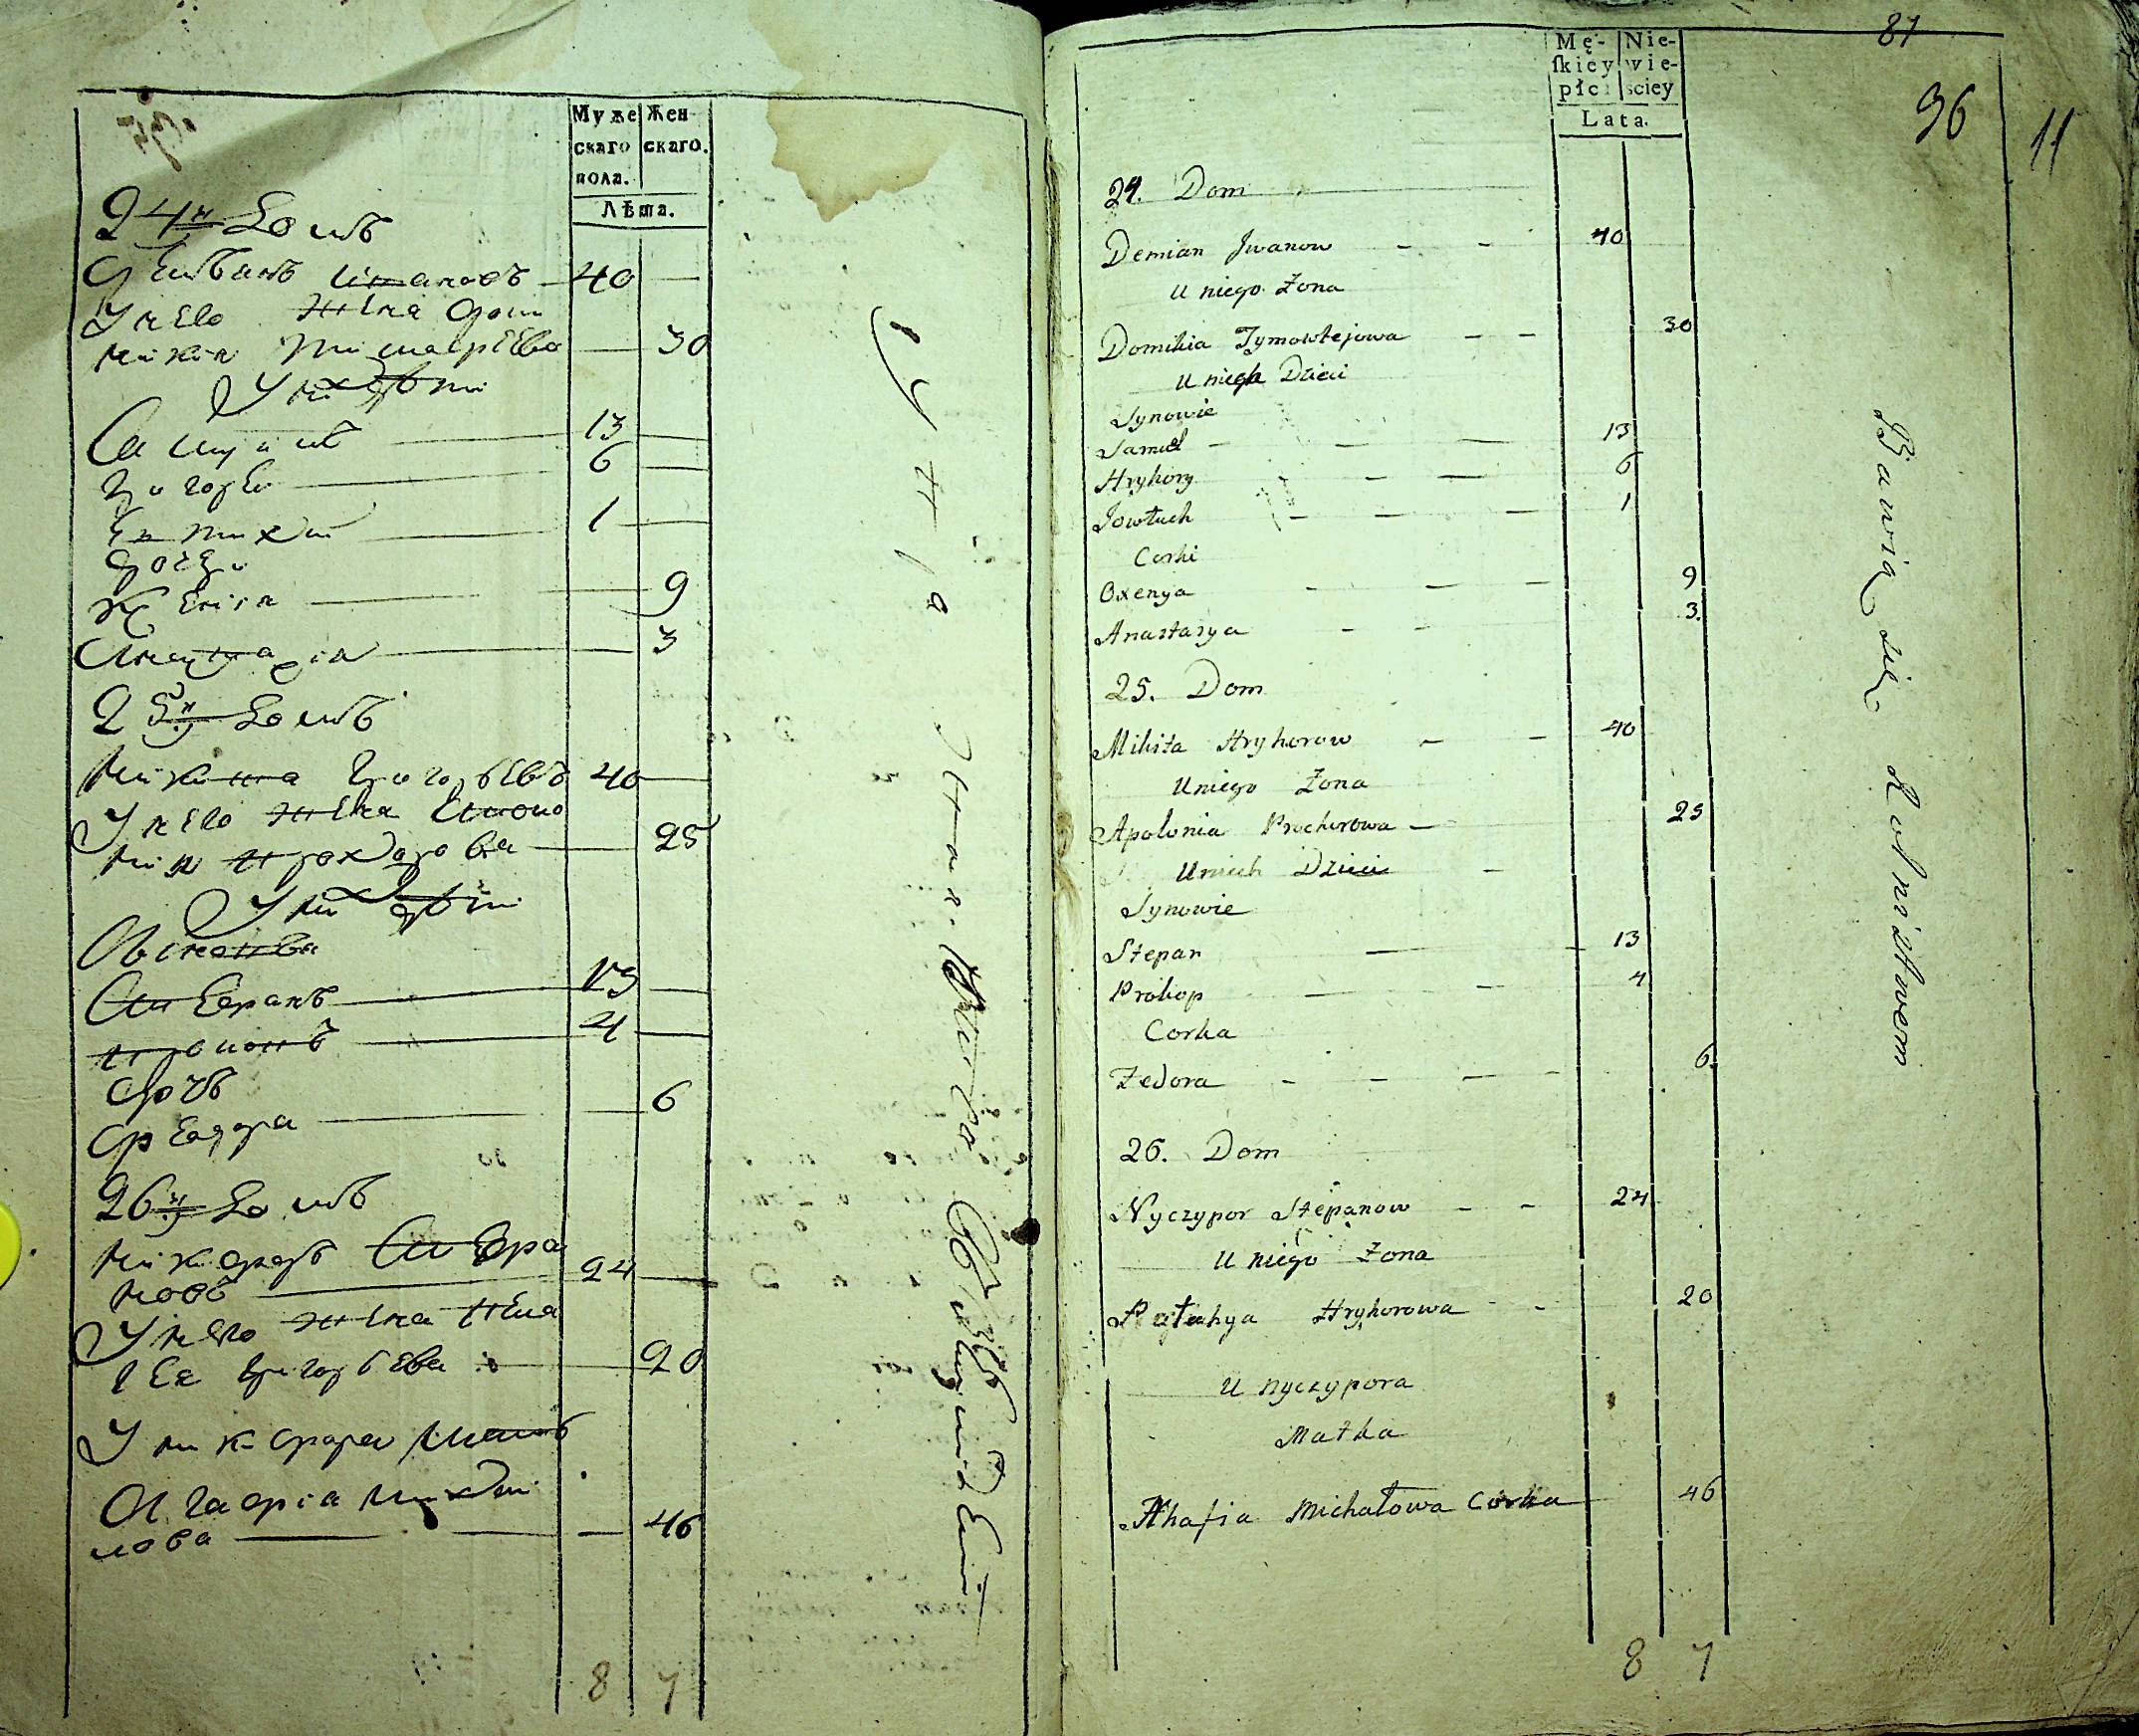 Муже Жен
скаго скаго.
пола.
Лѣта.
24й Домъ
Демьянъ Ивановъ 40
У него жена Доми
никия Тимофеева 30
У нихъ дѣти
Самуилъ 13
Григорей 6
1
Дочери
Ксения 9
Анастасія 3
25й Домъ
Никита Григорьевъ 40
У него жена Аполо
нія Прохорова 25
У нихъ дѣти
Степанъ 13
4
Дочь
Феодора 6
26й Домъ
Никифоръ Степа
новъ 24
У него жена Пела
гея Григорьева 20
У Никифора мать
Агафія Михай
лова 46
8 7
87
Mę- Nie-
ſkiey wie-
płci sciey
Lata.
36
11
24. Dom
Demian Jwanow 40
U niego Żona
Domikia Tymowtejowa 30
U nich Dzieci
Synowie
Samuel 13
Hryhory 6
Jowtuch 1
Corki
Oxenya 9
Anastasya 3.
25. Dom
Mikita Hryhorow 40
U niego Żona
Apolonia Prochorowa 25
U nich Dzieci
Synowie
Stepan 13
Prokop 4
Corka
Fedora 6.
26. Dom
Nyczypor Stepanow 24
U niego Żona
Pełahya Hryhorowa 20
U nyczypora
Matka
Ahafia Michałowa Corka 46
8 7
Bawią się Rolnictwem